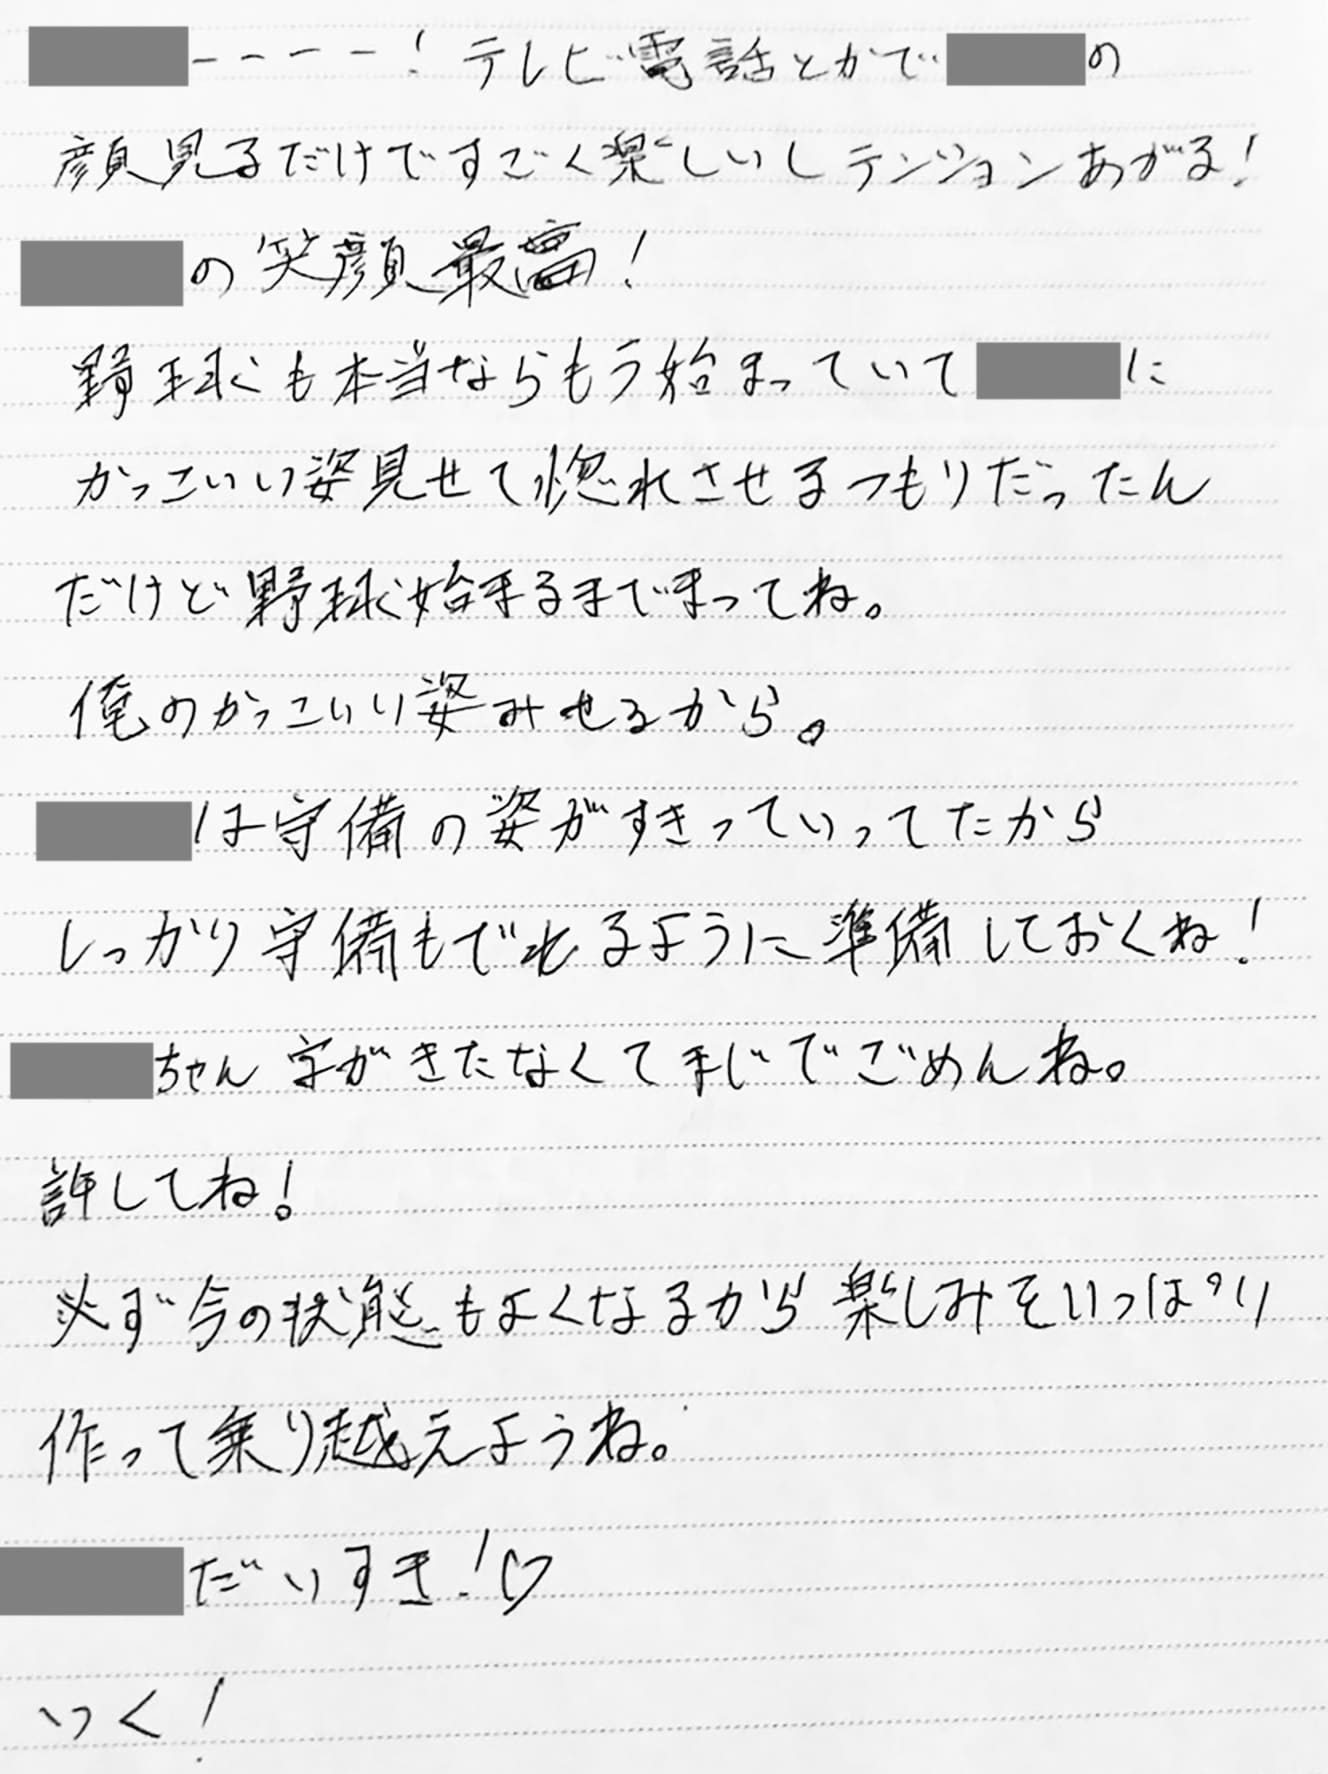 ーーーー！テレビ電話とかで の
顔見るだけですごく楽しいしテンションあがる！
の笑顔最高！
野球も本当ならもう始まっていて に
かっこいい姿見せて惚れさせるつもりだったん
だけど野球始まるまでまってね。
俺のかっこいい姿みせるから。
は守備の姿がすきっていってたから
しっかり守備もでれるように準備しておくね！
ちゃん 字がきたなくてまじでごめんね。
許してね！
必ず今の状態もよくなるから楽しみをいっぱい
作って乗り越えようね。
だいすき！♡
いっく！